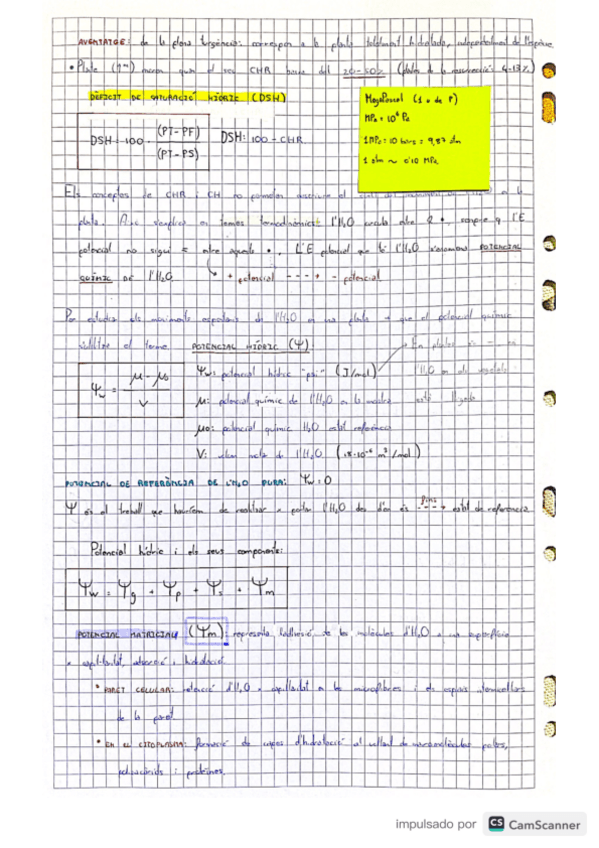 AVENTATGE: de la plena turgència: correspon a la planta totalment hidratada, independentment de
• Plate moren quan el seu CHR baixa del 20-50% 4-13%)
DÈFICIT DE SATURACIÓ HÍDRIC (DSH)
DSH = 100 · (PT-PF) / (PT-PS)
DSH: 100 - CHR
MegaPascal (1 u de P)
MPa = 10⁶ Pa
1 MPa = 10 bars = 9,87 atm
1 atm ~ 0'10 MPa
Els conceptes de CHR i CH no permeten a la
planta. en termes termodinàmics: l'H₂O circula entre 2 •, sempre q l'E
potencial no sigui = entre aquests •. L'E potencial que té l'H₂O s'anomena POTENCIAL
QUÍMIC DE l'H₂O.
+ potencial ---→ - potencial
Per estudiar els moviments de l'H₂O en una planta → que el potencial químic
utilitza el terme. POTENCIAL HÍDRIC (Ψ):
En plantes és
Ψw = μ - μ₀ / V
Ψw: potencial hídric "psi" (J/mol)
l'H₂O en els vegetals
μ: potencial químic de l'H₂O en la mostra
està lligada
μ₀: potencial químic H₂O estat referència
V: molar de l'H₂O (18·10⁻⁶ m³/mol)
POTENCIAL DE REFERÈNCIA DE L'H₂O PURA: Ψw = 0
Ψ és el treball que hauríem de realitzar a portar l'H₂O des d'on és fins ---→ estat de referència.
Potencial hídric i els seus components:
Ψw = Ψg + Ψp + Ψs + Ψm
POTENCIAL MATRICIAL (Ψm): representa l'adhesió de les molècules d'H₂O a una superfície
capil·laritat, adsorció i hidratació
• PARET CEL·LULAR: retenció d'H₂O x capil·laritat a les microfibres i els espais
de la paret.
• EN EL CITOPLASMA: formació de capes d'hidratació al voltant de macromolècules polars,
polisacàrids i proteïnes.
impulsado por CS CamScanner